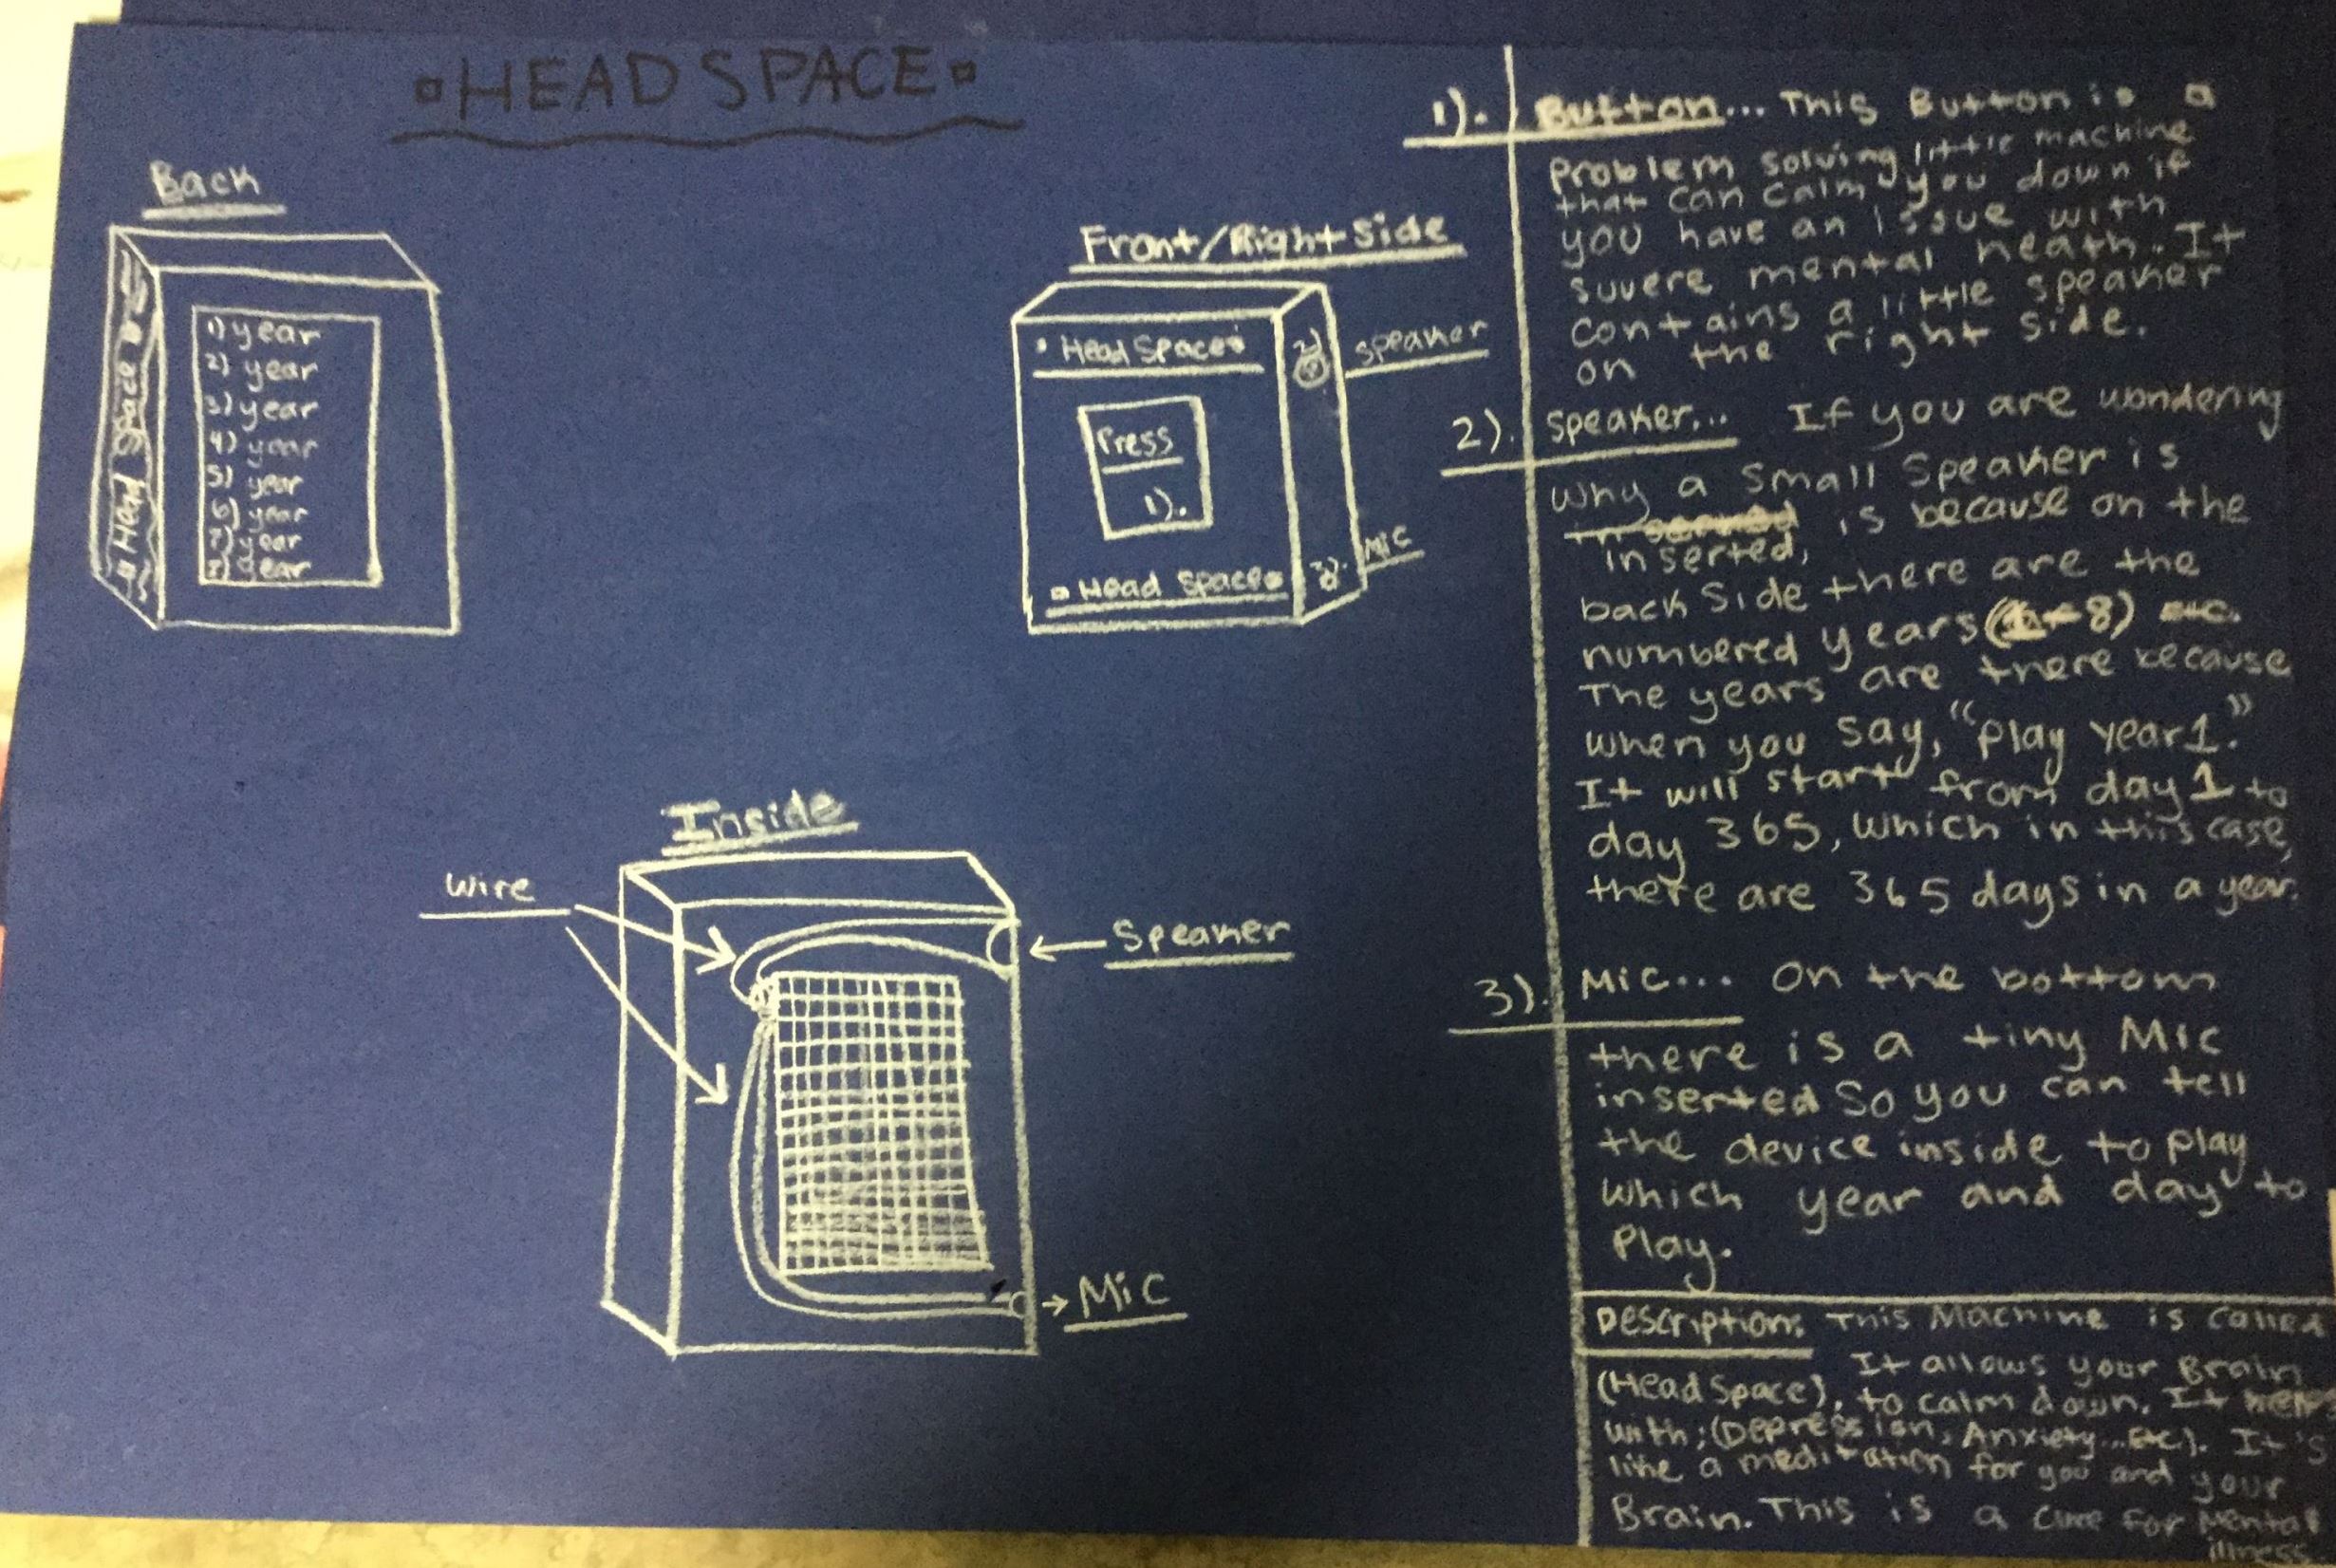 ▫HEAD SPACE▫
Back
Head Space
1) year
2) year
3) year
4) year
5) year
6) year
7) year
8) year
Front/Right Side
• Head Space •
2)
Speaker
Press
1).
3).
Mic
▫ Head Space ▫
Inside
Wire
Speaker
Mic
1). Button... This Button is a
Problem solving little machine
that can calm you down if
you have an issue with
suvere mental heath. It
contains a little speaker
on the right side.
2). Speaker... If you are wondering
why a small Speaker is
is because on the
inserted,
back Side there are the
numbered years (1-8)
The years are there because
when you say, "Play year 1."
It will start from day 1 to
day 365, which in this case,
there are 365 days in a year.
3). Mic... On the bottom
there is a tiny Mic
inserted So you can tell
the device inside to play
which year and day to
Play.
Description: This Machine is called
(Head Space). It allows your Brain
to calm down. It helps
with; (Depression, Anxiety...Etc). It's
like a meditation for you and your
Brain. This is a cure for Mental
illness.